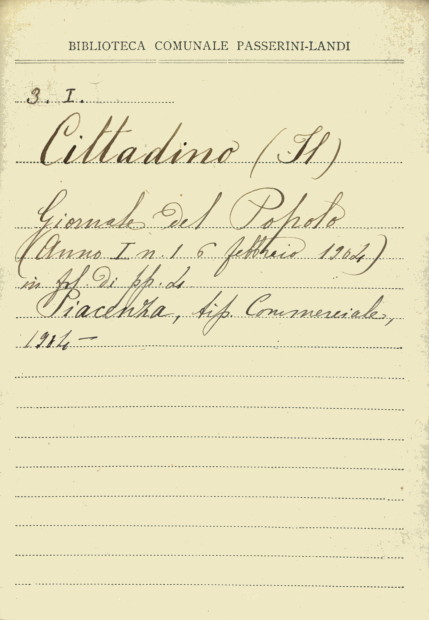 BIBLIOTECA COMUNALE PASSERINI-LANDI
3. I.
Cittadino (Il)
Giornale del Popolo
(Anno I n. 1 6 febbraio 1904)
in fol. di pp. 4
Piacenza, tip. Commerciale,
1904 —